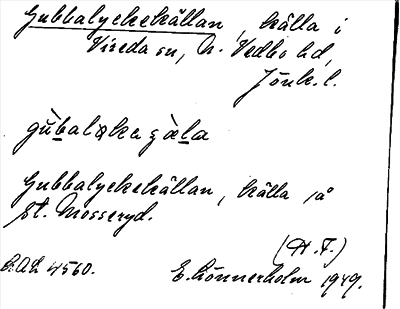 Gubbalyckekällan, källa i
Vireda sn, N. Vedbo hd,
Jönk. l.
Gubbalyckekällan, källa på
st. Mosseryd.
(H. F.)
E. Lönnerholm 1949.